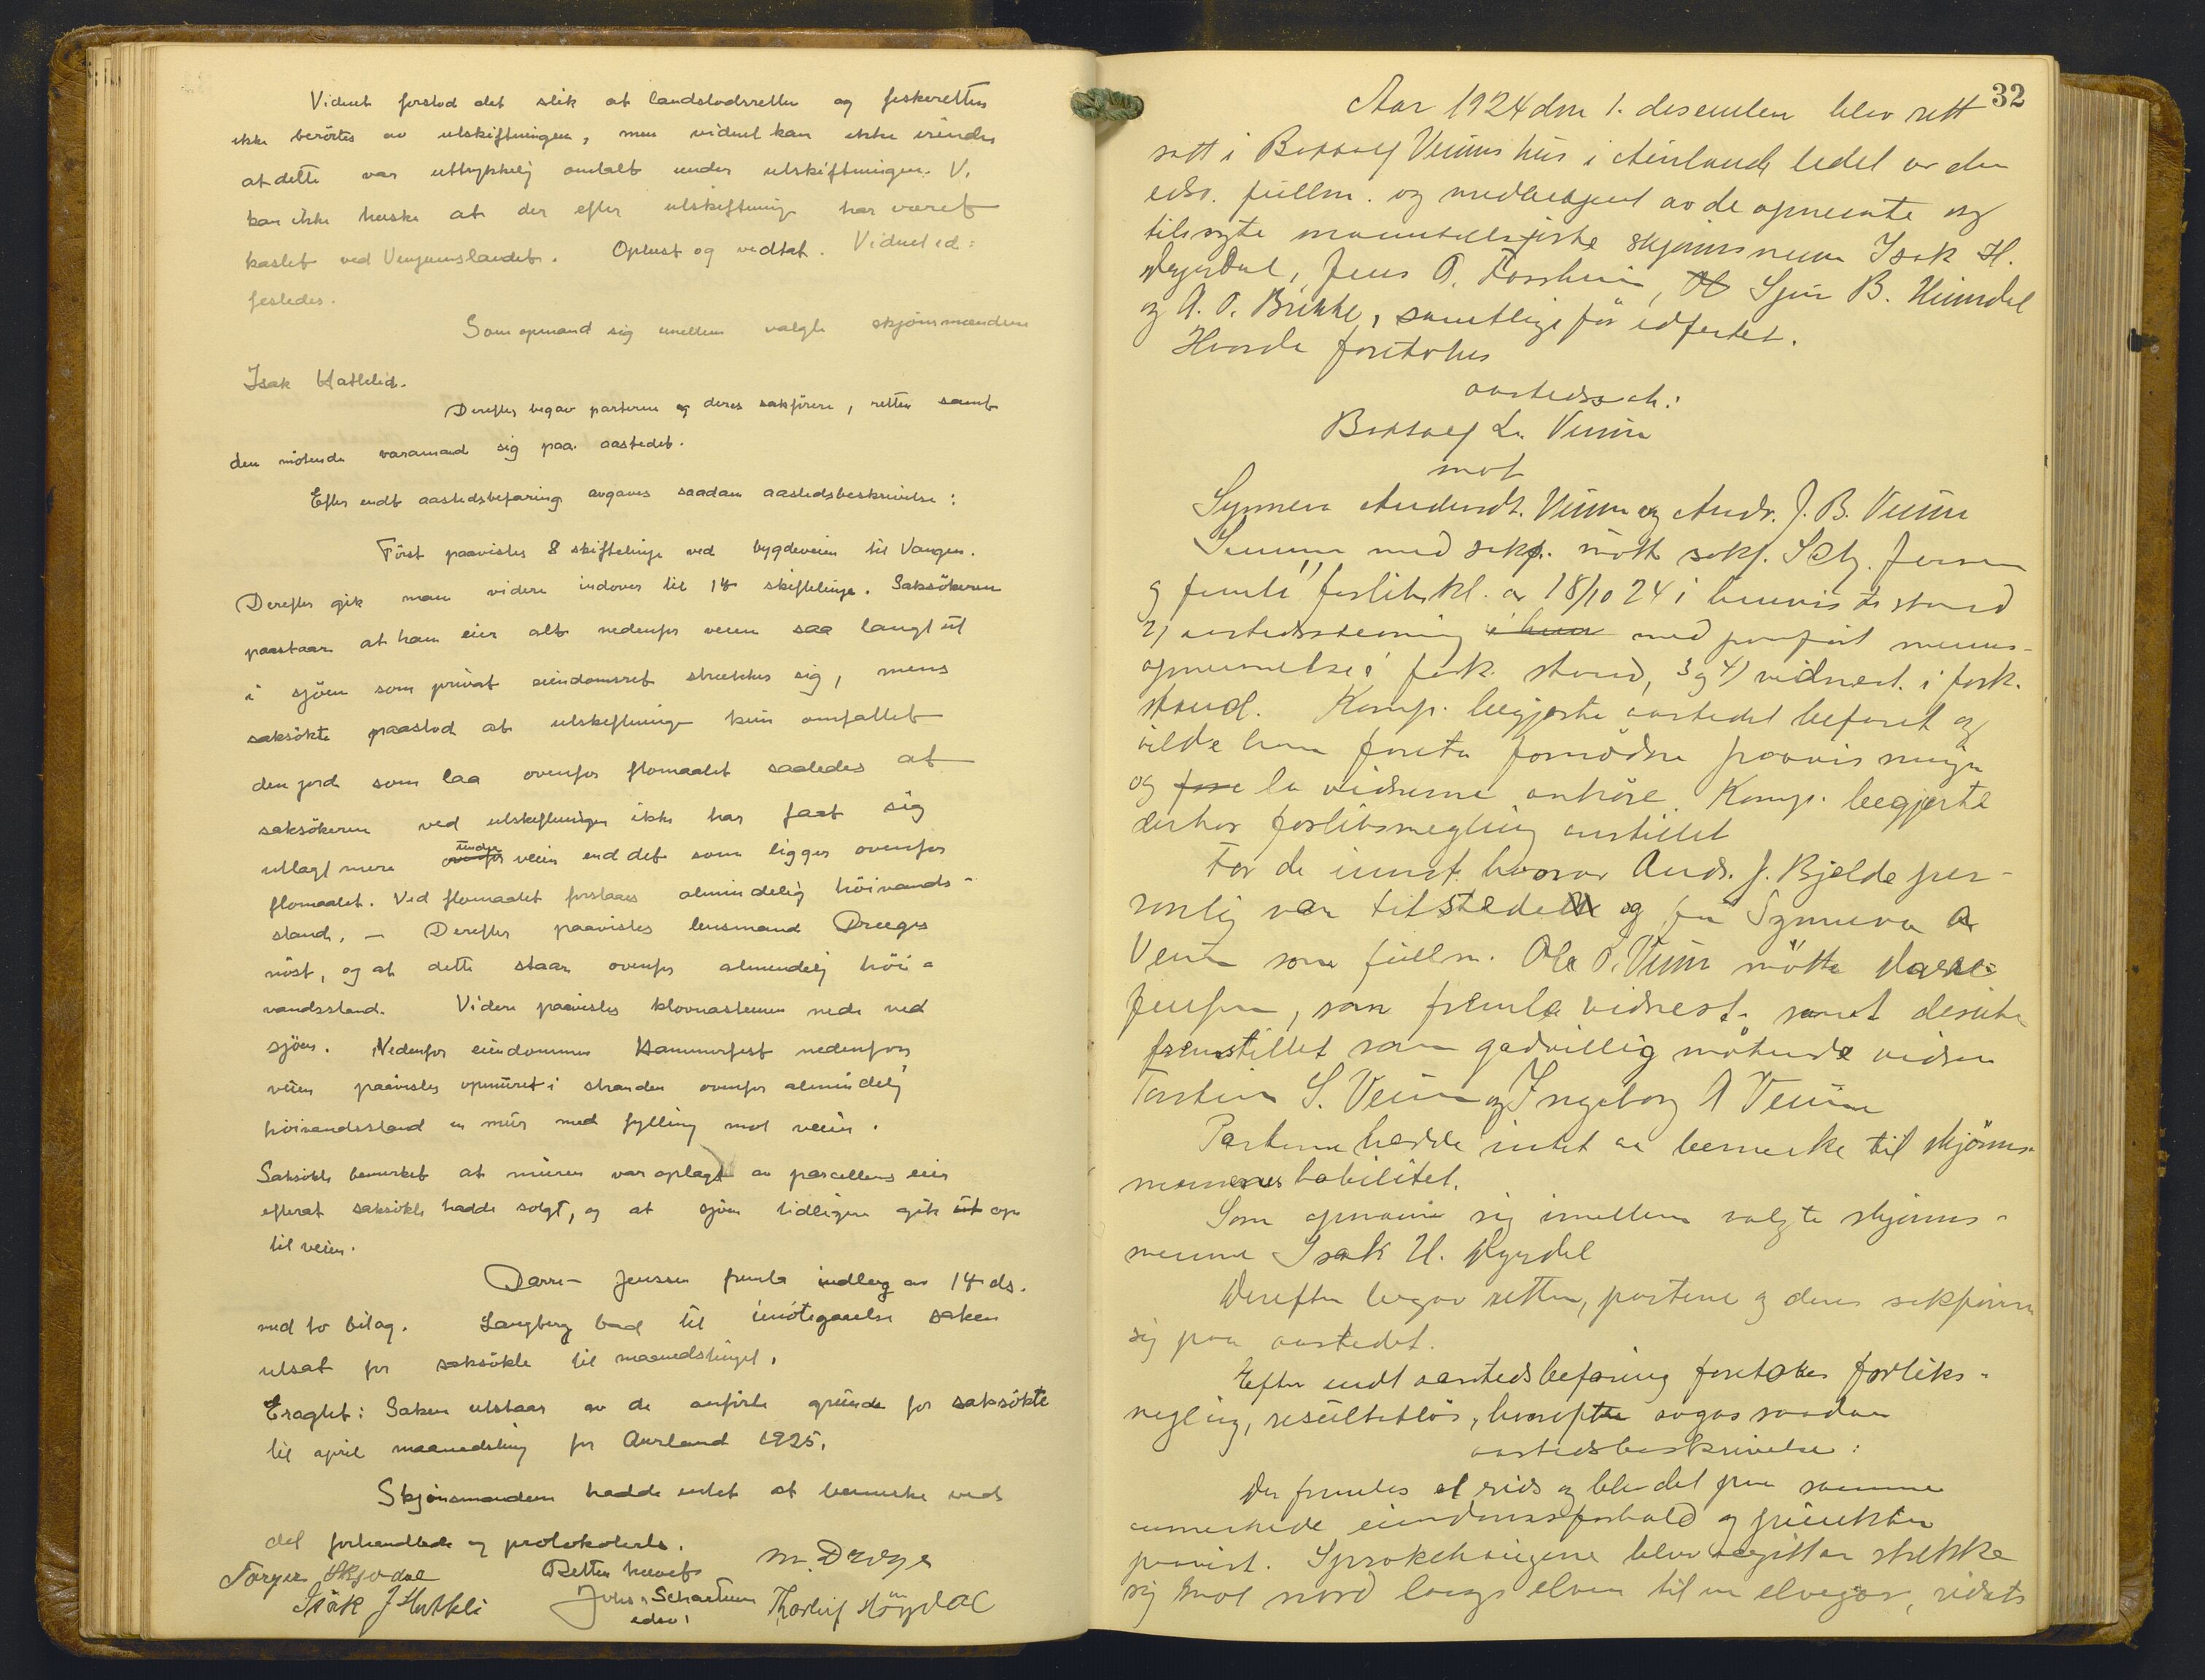 Vidnet forstod det slik at landslodsretten og fiskeretten
ikke berörtes av utskiftningen, men vidnet kan ikke erindre
at dette var uttrykkelig omtalt under utskiftningen. V.
kan ikke huske at der efter utskiftning har været
kastet ved Vangenslandet. Oplæst og vedtat. Vidnet ed-
festedes.
Som opmand sig imellem valgte skjönsmændene
Isak Hatleli.
Derefter begav parterne og deres sakförere, retten samt
den mötende varamand sig paa aastedet.
Efter endt aastedsbefaring avgaves saadan aastedsbeskrivelse:
Först paavistes 8 skiftelinje ved bygdeveien til Vangen.
Derefter gik man videre indover til 14 skiftelinje. Saksökeren
paastaar at han eier alt nedenfor veien saa langt ut
i sjöen som privat eiendomsret strækker sig, mens
saksökte paastod at utskiftningen kun omfattet
den jord som laa ovenfor flomaalet saaledes at
saksökeren ved utskiftningen ikke har faat sig
utlagt mere ovenfor under veien end det som ligger ovenfor
flomaalet. Ved flomaalet forstaaes almindelig höivands-
stand. — Derefter paavistes lensmand Dreges
nöst, og at dette staar ovenfor almindelig höi-
vandsstand. Videre paavistes klovnasteinen nede ved
sjöen. Nedenfor eiendommen Hammerfest nedenfor
veien paavistes opmuret i stranden ovenfor almindelig
höivandsstand en mur med fylling mot veien.
Saksökte bemerket at muren var oplagt av parcellens eier
efterat saksökte hadde solgt, og at sjöen tidligere gik ut op
til veien.
Darre-Jenssen fremla indlæg av 14 ds.
med to bilag. Langberg bad til imötegaaelse saken
utsat for saksökte til maanedstinget.
Eragtet: Saken utstaar av de anförte grunde for saksökte
til april maanedsting for Aurland 1925.
Skjönsmændene hadde intet at bemerke ved
det forhandlede og protokollerte.
Retten hævet
M. Drege
Torger Skjerdal
Isak J Hatleli
Johs. Schartum
edsv.
Thorleif Höydal
32
Aar 1924 den 1. desember blev rett
satt i Botolf Veums hus i Aurland ledet av den
edsv. fullm. og medbetjent av de opnevnte og
tilsagte skjönsmenn Isak H.
Dyrdal, Jens O. Forsheim, Sjur B. Heimdal
og A. O. Brekke, samtlige för edfestet.
Hvorda foretokes
aastedssak:
Botolf L. Veum
mot
Synneva Andersdt. Veum og Andr. J. B. Veum
med sakf. mött sakf. Jensen
og fremla forlikskl. av 18/10 24 i bevis stand
2) aastedsstevning med paaført menns-
opnevnelse i fork. stand, 3 og 4) vidnest. i fork.
stand. Komp. begjærte aastedet befaret og
vilde han foreta fornödne paavisninger
og la vidnerne anhöre. Komp. begjærte
derhos forliksmegling anstillet
For de innst. hvorav Andr. J. Bjelde per-
sonlig var tilstede og for Synneva A
Veum som fullm. Ole O. Veum mötte Darre-
Jenssen, som fremla vidnest. samt desuten
fremstillet som godvillig mötende vidner
Torstein S. Veum og Ingeborg A Veum
Parterne hadde intet aa bemerke til skjöns-
mennenes habilitet.
Som opmann sig imellem valgte skjöns-
mennene Isak H. Dyrdal
Derefter begav retten, partene og deres sakförere
sig paa aastedet.
Efter endt aastedsbefaring foretokes forliks-
megling, resultatlös, hvorefter avgas saadan
aastedsbeskrivelse:
Der fremlas et rids og blev det paa samme
anmerkede eiendomsforhold og punkter
paavist. blev sagt aa strekke
sig mot nord langs elven til en elvegar, vidste